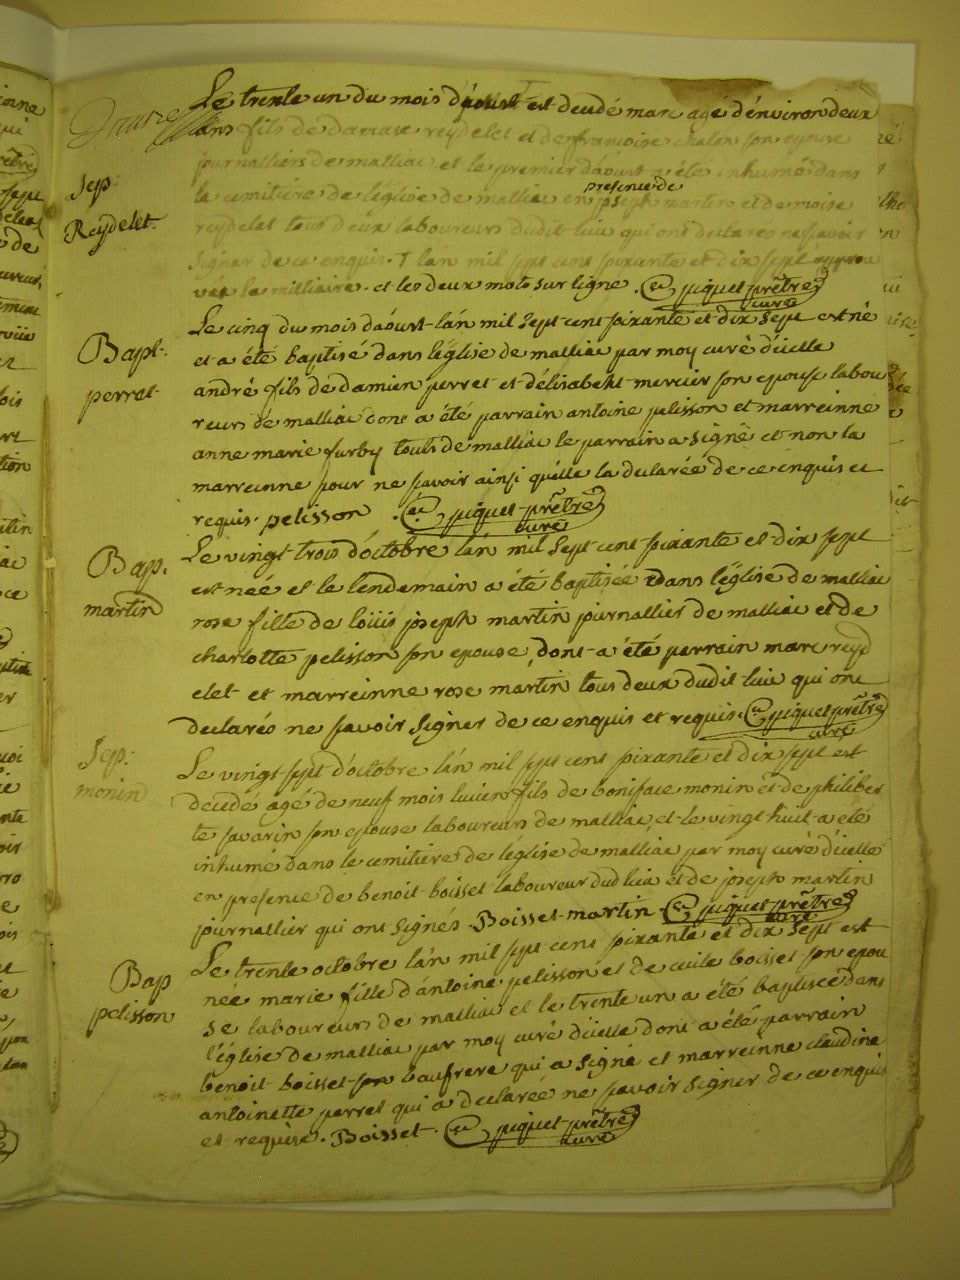 Sep:
Reydelet
Le trente un du mois d'aoust est decedé marc agé d'environ deux
ans fils de damase reydelet et de françoise chalan son epouse
journalliers de malliac et le premier d'aoust a été inhumé dans
presence de
le cemitiere de l'eglise de malliac en joseph martin et de moise
reydelet tous deux laboureurs dudit lieu qui ont declarés ne savoir
signer de ce enquis. l'an mil sept cent soixante et dix sept approu
vet la milliaire. et les deux mots sur ligne. piquet prêtre
curé
Bapt.
perret
Le cinq du mois d'aoust l'an mil sept cent soixante et dix sept est né
et a été baptisé dans l'église de malliac par moy curé d'icelle
andré fils de damien perret et d'élisabeht mercier son epouse labou
reurs de malliac dont a été parrain antoine pelisson et marreinne
anne marie furby touts de malliac le parrain a signé et non la
marreinne pour ne savoir ainsi quelle la declarée de ce enquis et
requis. pelisson. piquet prêtre
curé
Bap.
martin
Le vingt trois d'octobre l'an mil sept cent soixante et dix sept
est née et le lendemain a été baptisée dans l'église de malliac
rose fille de loüis joseph martin journallier de malliac et de
charlotte pelisson son epouse, dont a été parrain marc reyd
elet et marreinne rose martin tous deux dudit lieu qui ont
declarés ne savoir signer de ce enquis et requis. piquet prêtre
curé
Sep:
monin
Le vingt sept d'octobre l'an mil sept cent soixante et dix sept est
decedé agé de neuf mois lucien fils de boniface monin et de philiber
te savarin son epouse laboureurs de malliac, et le vingt huit a été
inhumé dans le cemitiere de l'eglise de malliac par moy curé d'icelle
en presence de benoit boisset laboureur dud lieu et de joseph martin
journallier qui ont signés. Boisset martin. piquet prêtre
curé
Bap
pelisson
Le trente octobre l'an mil sept cent soixante et dix sept est
née marie fille d'antoine pelisson et de cecile boisset son epou
se laboureurs de malliac et le trente un a été baptisée dans
l'église de malliac par moy curé d'icelle dont a été parrain
benoit boisset son baufrere qui a signé et marreinne claudine
antoinette perret qui a declarée ne savoir signer de ce enquis
et requise. Boisset. piquet prêtre
curé